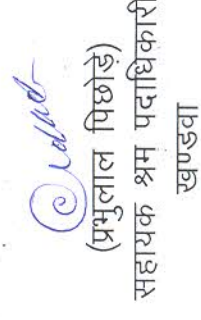 (प्रभुलाल पिछोड़े)
सहायक श्रम पदाधिकारी
खण्डवा